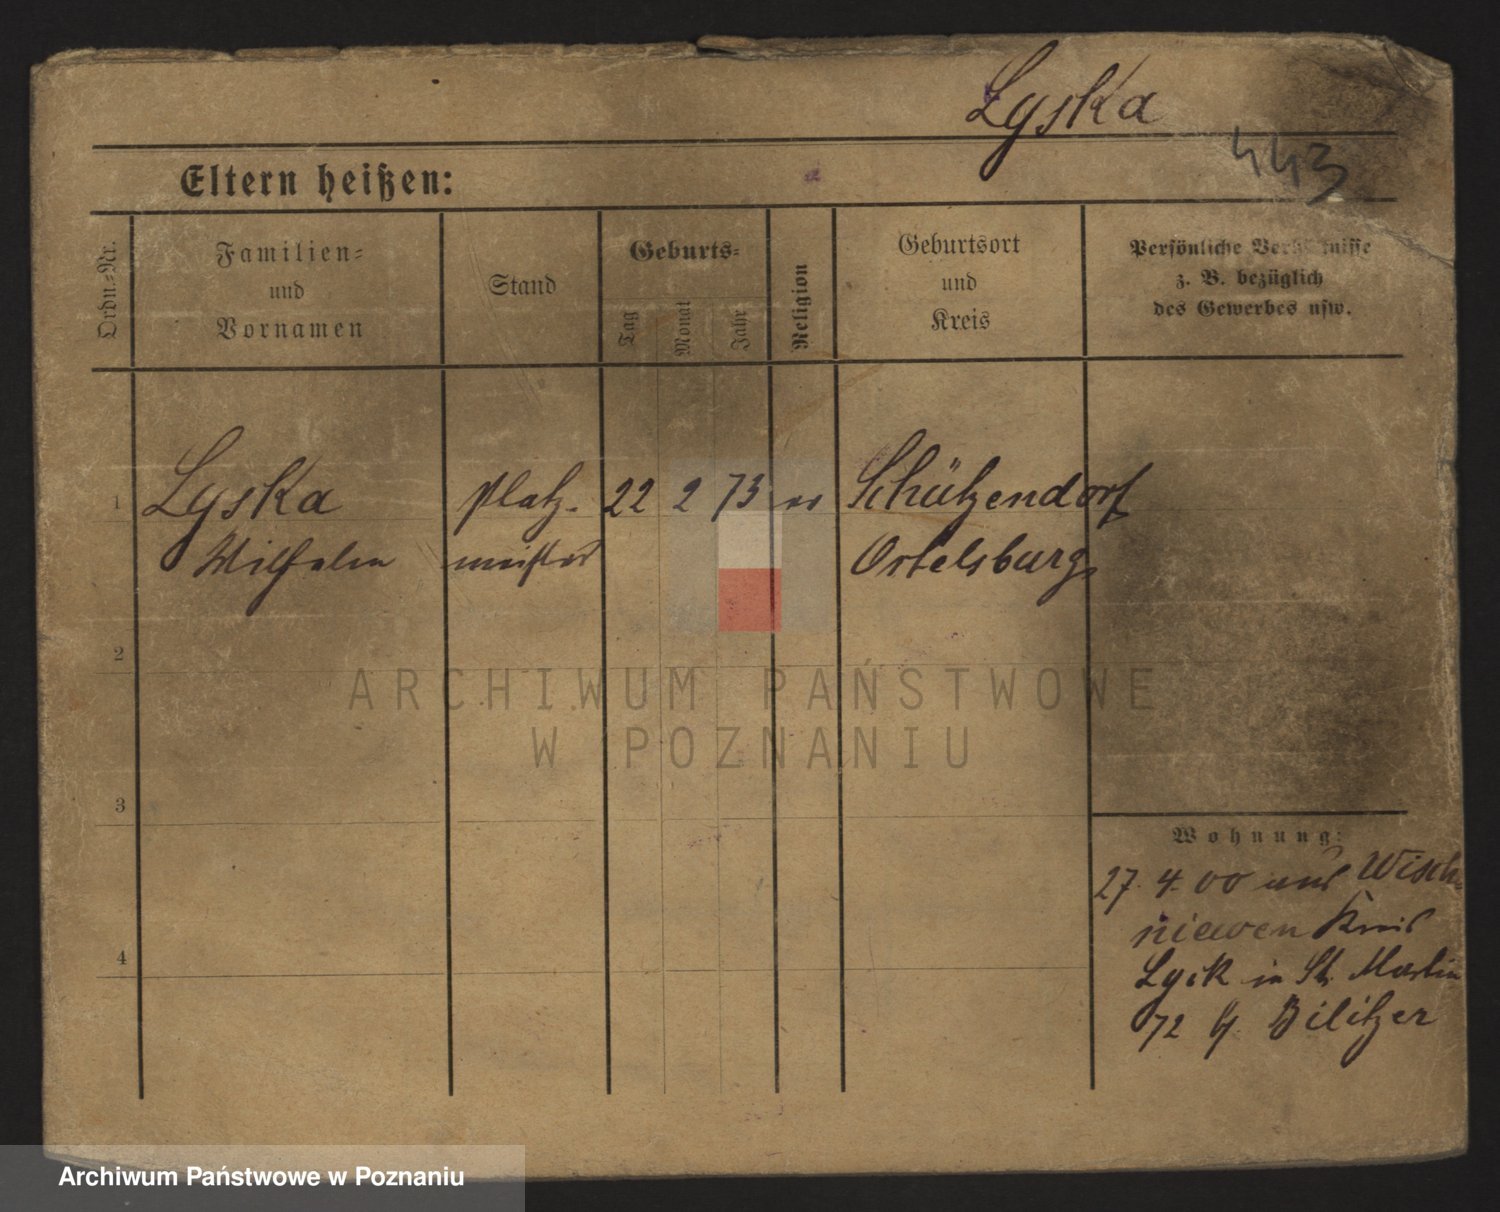 Lyska
443
Eltern heißen:
Ordn.-Nr.
Familien-
und
Vornamen
Stand
Geburts-
Tag
Monat
Jahr
Religion
Geburtsort
und
Kreis
Persönliche Verhältnisse
z. B. bezüglich
des Gewerbes usw.
1 Lyska Platz- 22 2 73 ev Schützendorf
Wilhelm meister Ortelsburg
2
3
4
Wohnung:
27. 4. 00 aus Wisch-
niewen Kreis
Lyck in St. Martin
72 b/. Bilitzer
ARCHIWUM PAŃSTWOWE
W POZNANIU
Archiwum Państwowe w Poznaniu